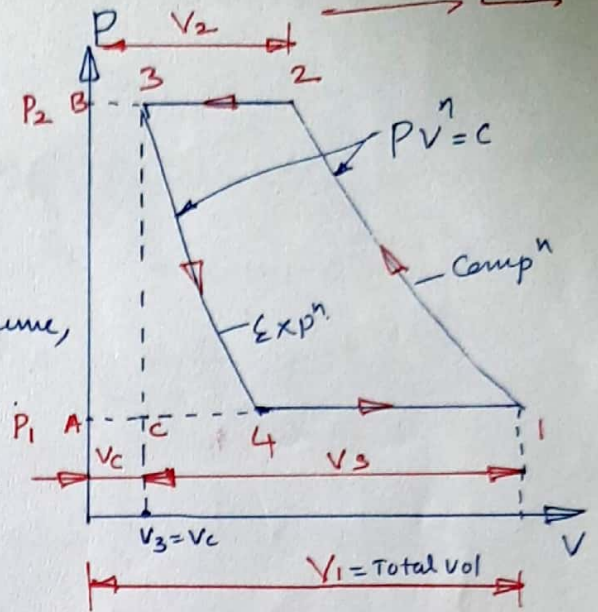 P
V2
3
2
P2 B
PVⁿ=C
Compⁿ
Expⁿ
P1 A
C
4
1
Vc
Vs
V3=Vc
V
V1=Total Vol